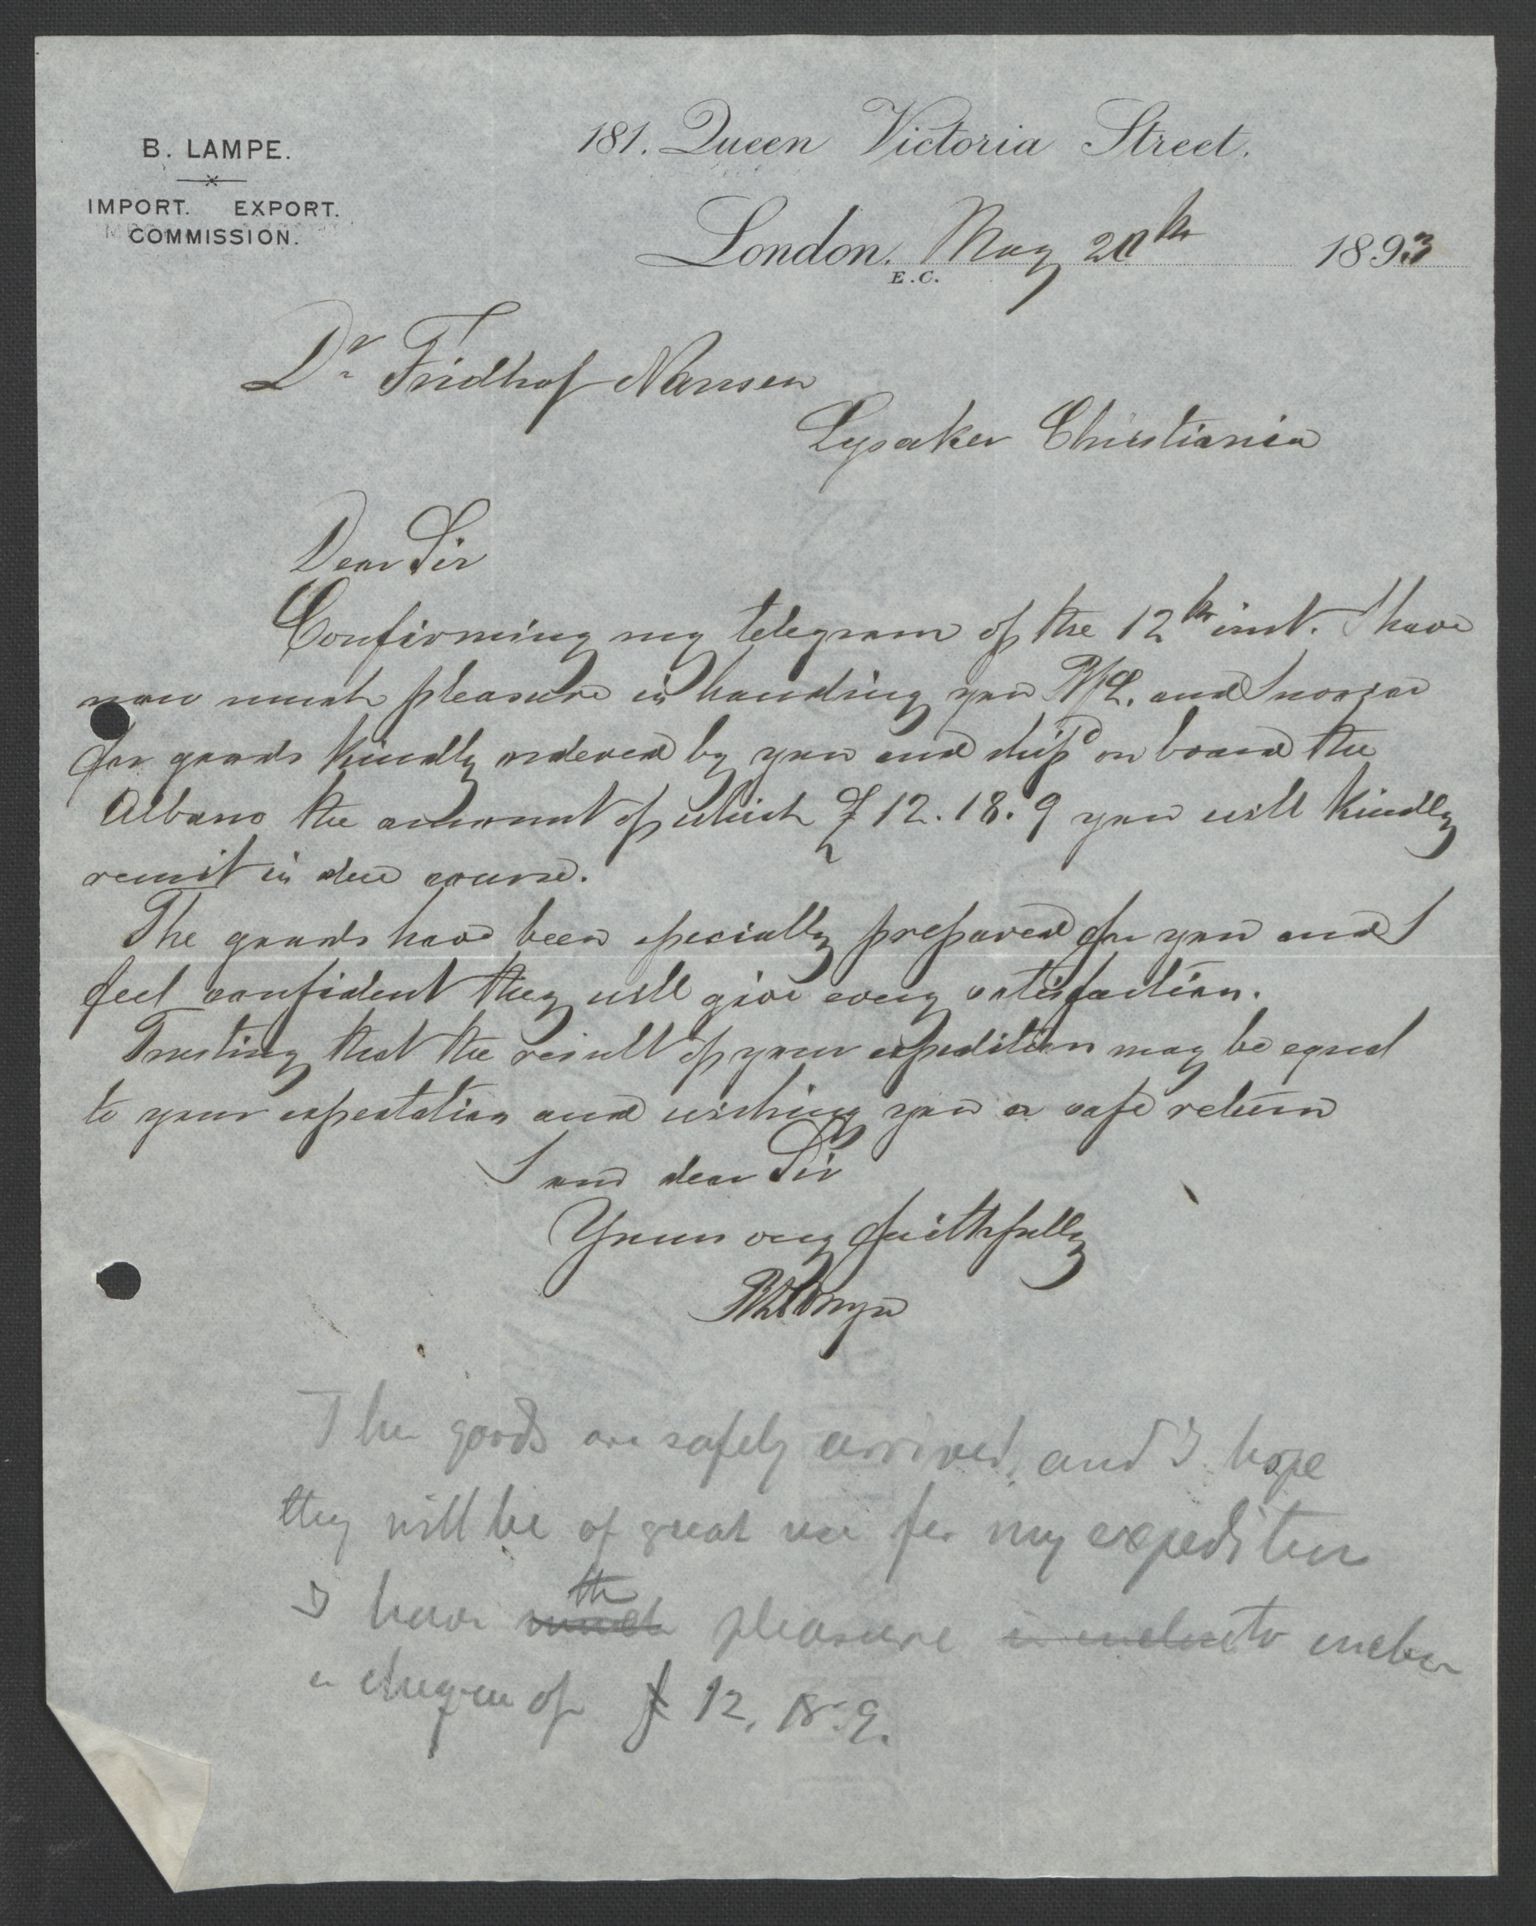 B. LAMPE.
IMPORT. EXPORT.
COMMISSION.
181. Queen Victoria Street.
London. E.C. May 20th 1893
Dr Fridhof Nansen
Lysaker Christiania
Dear Sir
Confirming my telegram of the 12th inst. I have
now much pleasure in handing you B/L. and Invoice
for goods kindly ordered by you and shipd on board the
Albano the amount of which £12.18.9 you will kindly
remit in due course.
The goods have been specially prepared for you and I
feel confident they will give every satisfaction.
Trusting that the result of your expedition may be equal
to your expectation and wishing you a safe return
I am dear Sir
Yours very faithfully
The goods are safely arrived, and I hope
they will be of great use for my expedition
I have much the pleasure to
a cheque of £ 12. 18. 9.